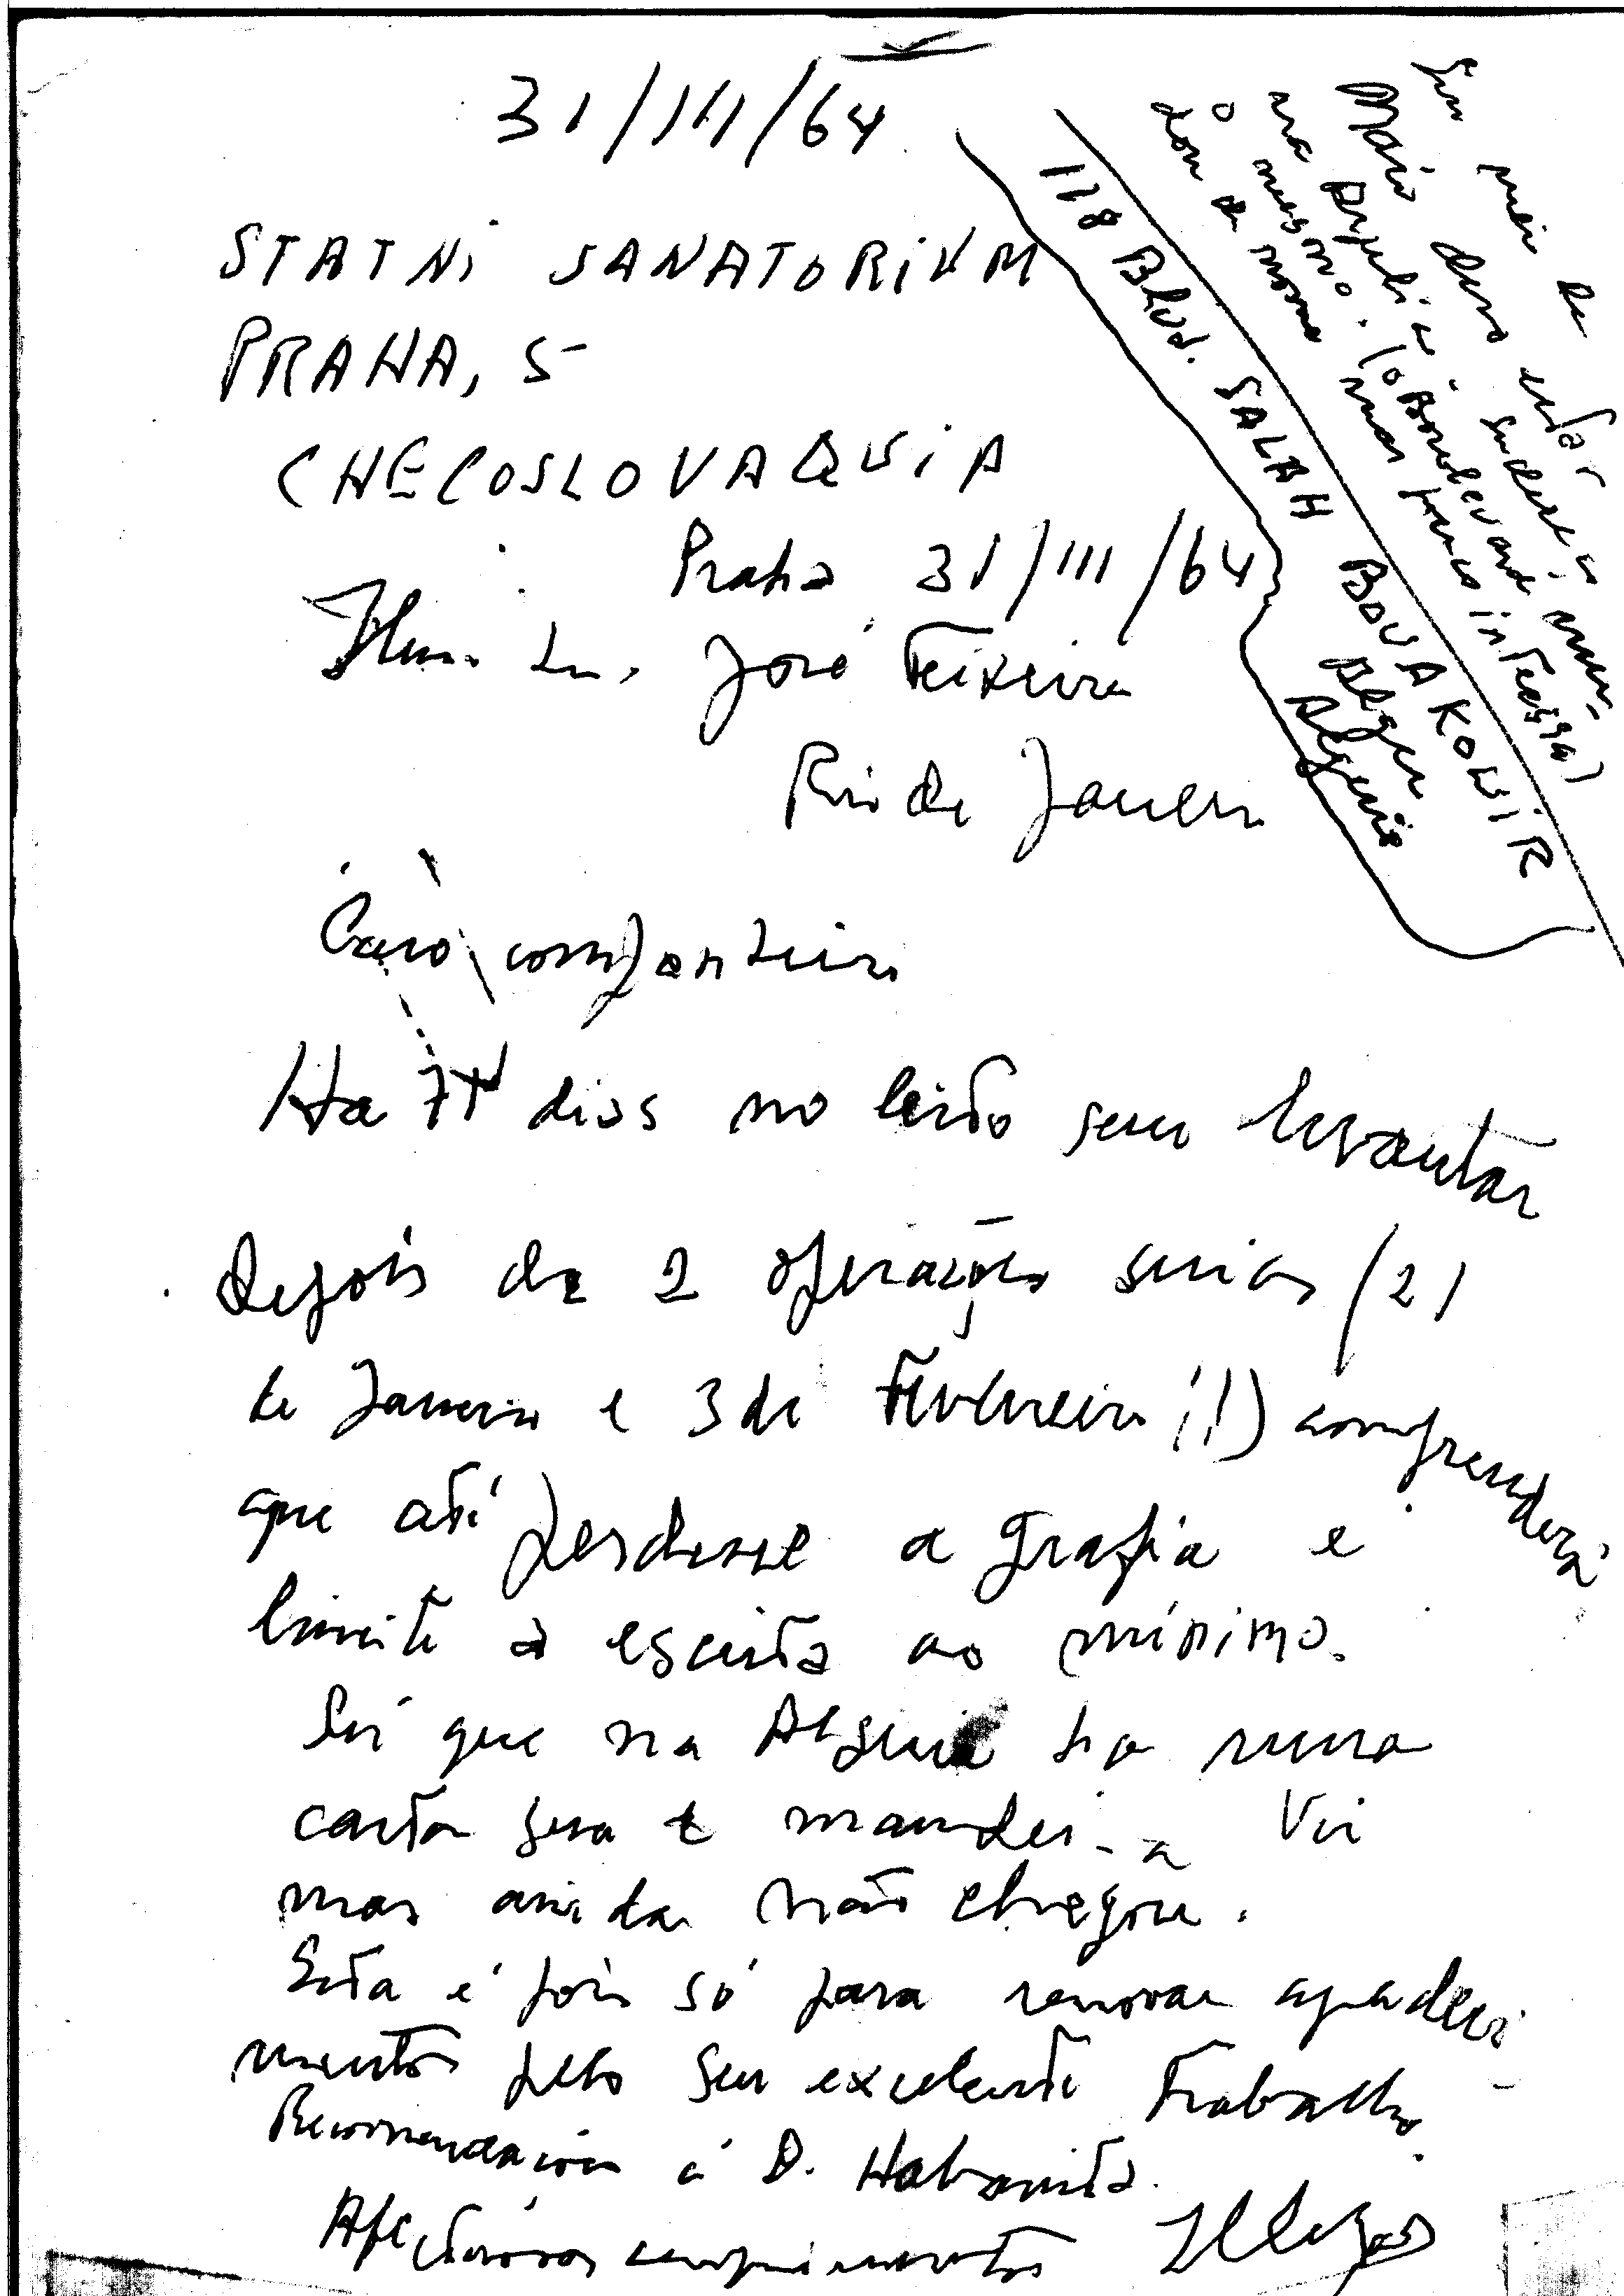 31/III/64
STATNi SANATORIUM
PRAHA, 5
CHECOSLOVAQUiA
Praha 31/III/64
Ilm. Sr. José Teixeira
Rio de Janeiro
Caro companheiro
Ha dias no leito sem levantar
depois de 2 operações serias (21
de Janeiro e 3 de Fevereiro!!) compreenderá
que até perdesse a grafia e
limite a escrita ao mínimo.
Sei que na Algeria ha uma
carta sua e mandei-a vir
mas ainda não chegou.
Esta é pois só para renovar agradeci-
mentos pelo seu excelente trabalho.
Recomendações á D. Habanita.
Afectuosos cumprimentos
Em meio de
Maio devo estar
na Argelia. Endereço
o mesmo. (o Boulevard
mudou de nome mas pouco interessa)
118 Blvd. SALAH BOUAKOUiR
Alger
Algerie